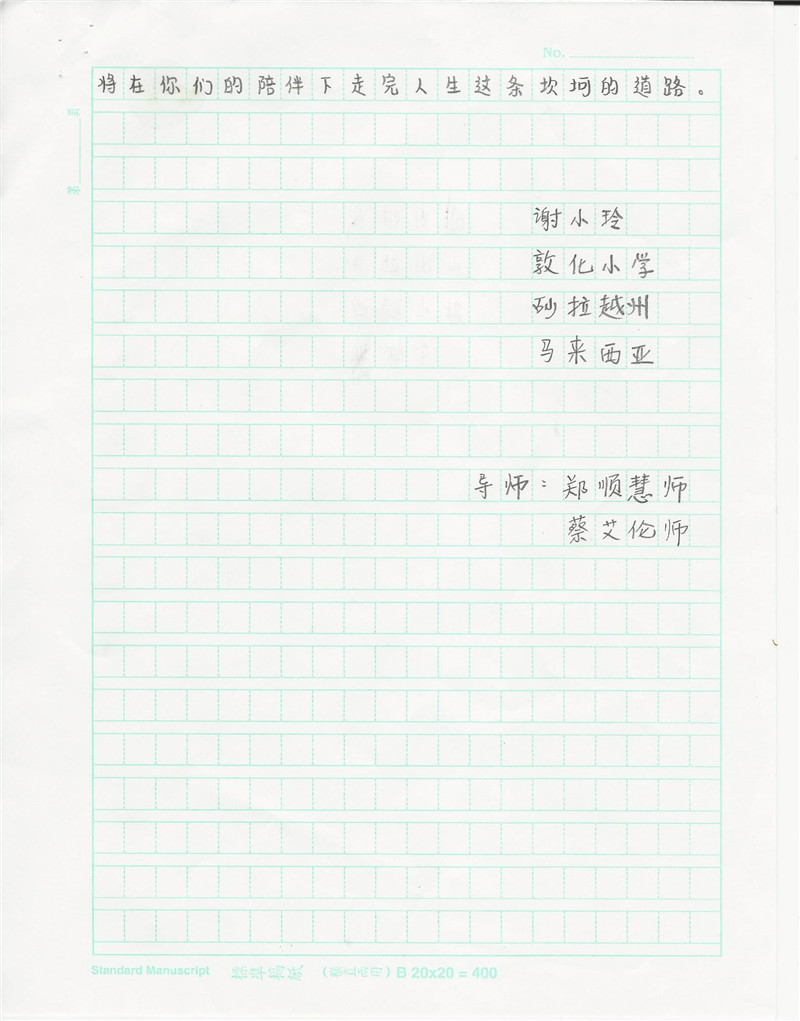 No.
将在你们的陪伴下走完人生这条坎坷的道路。
第 页
谢小玲
敦化小学
砂拉越州
马来西亚
导师：郑顺慧师
蔡艾伦师
Standard Manuscript 标准稿纸 B 20x20 = 400